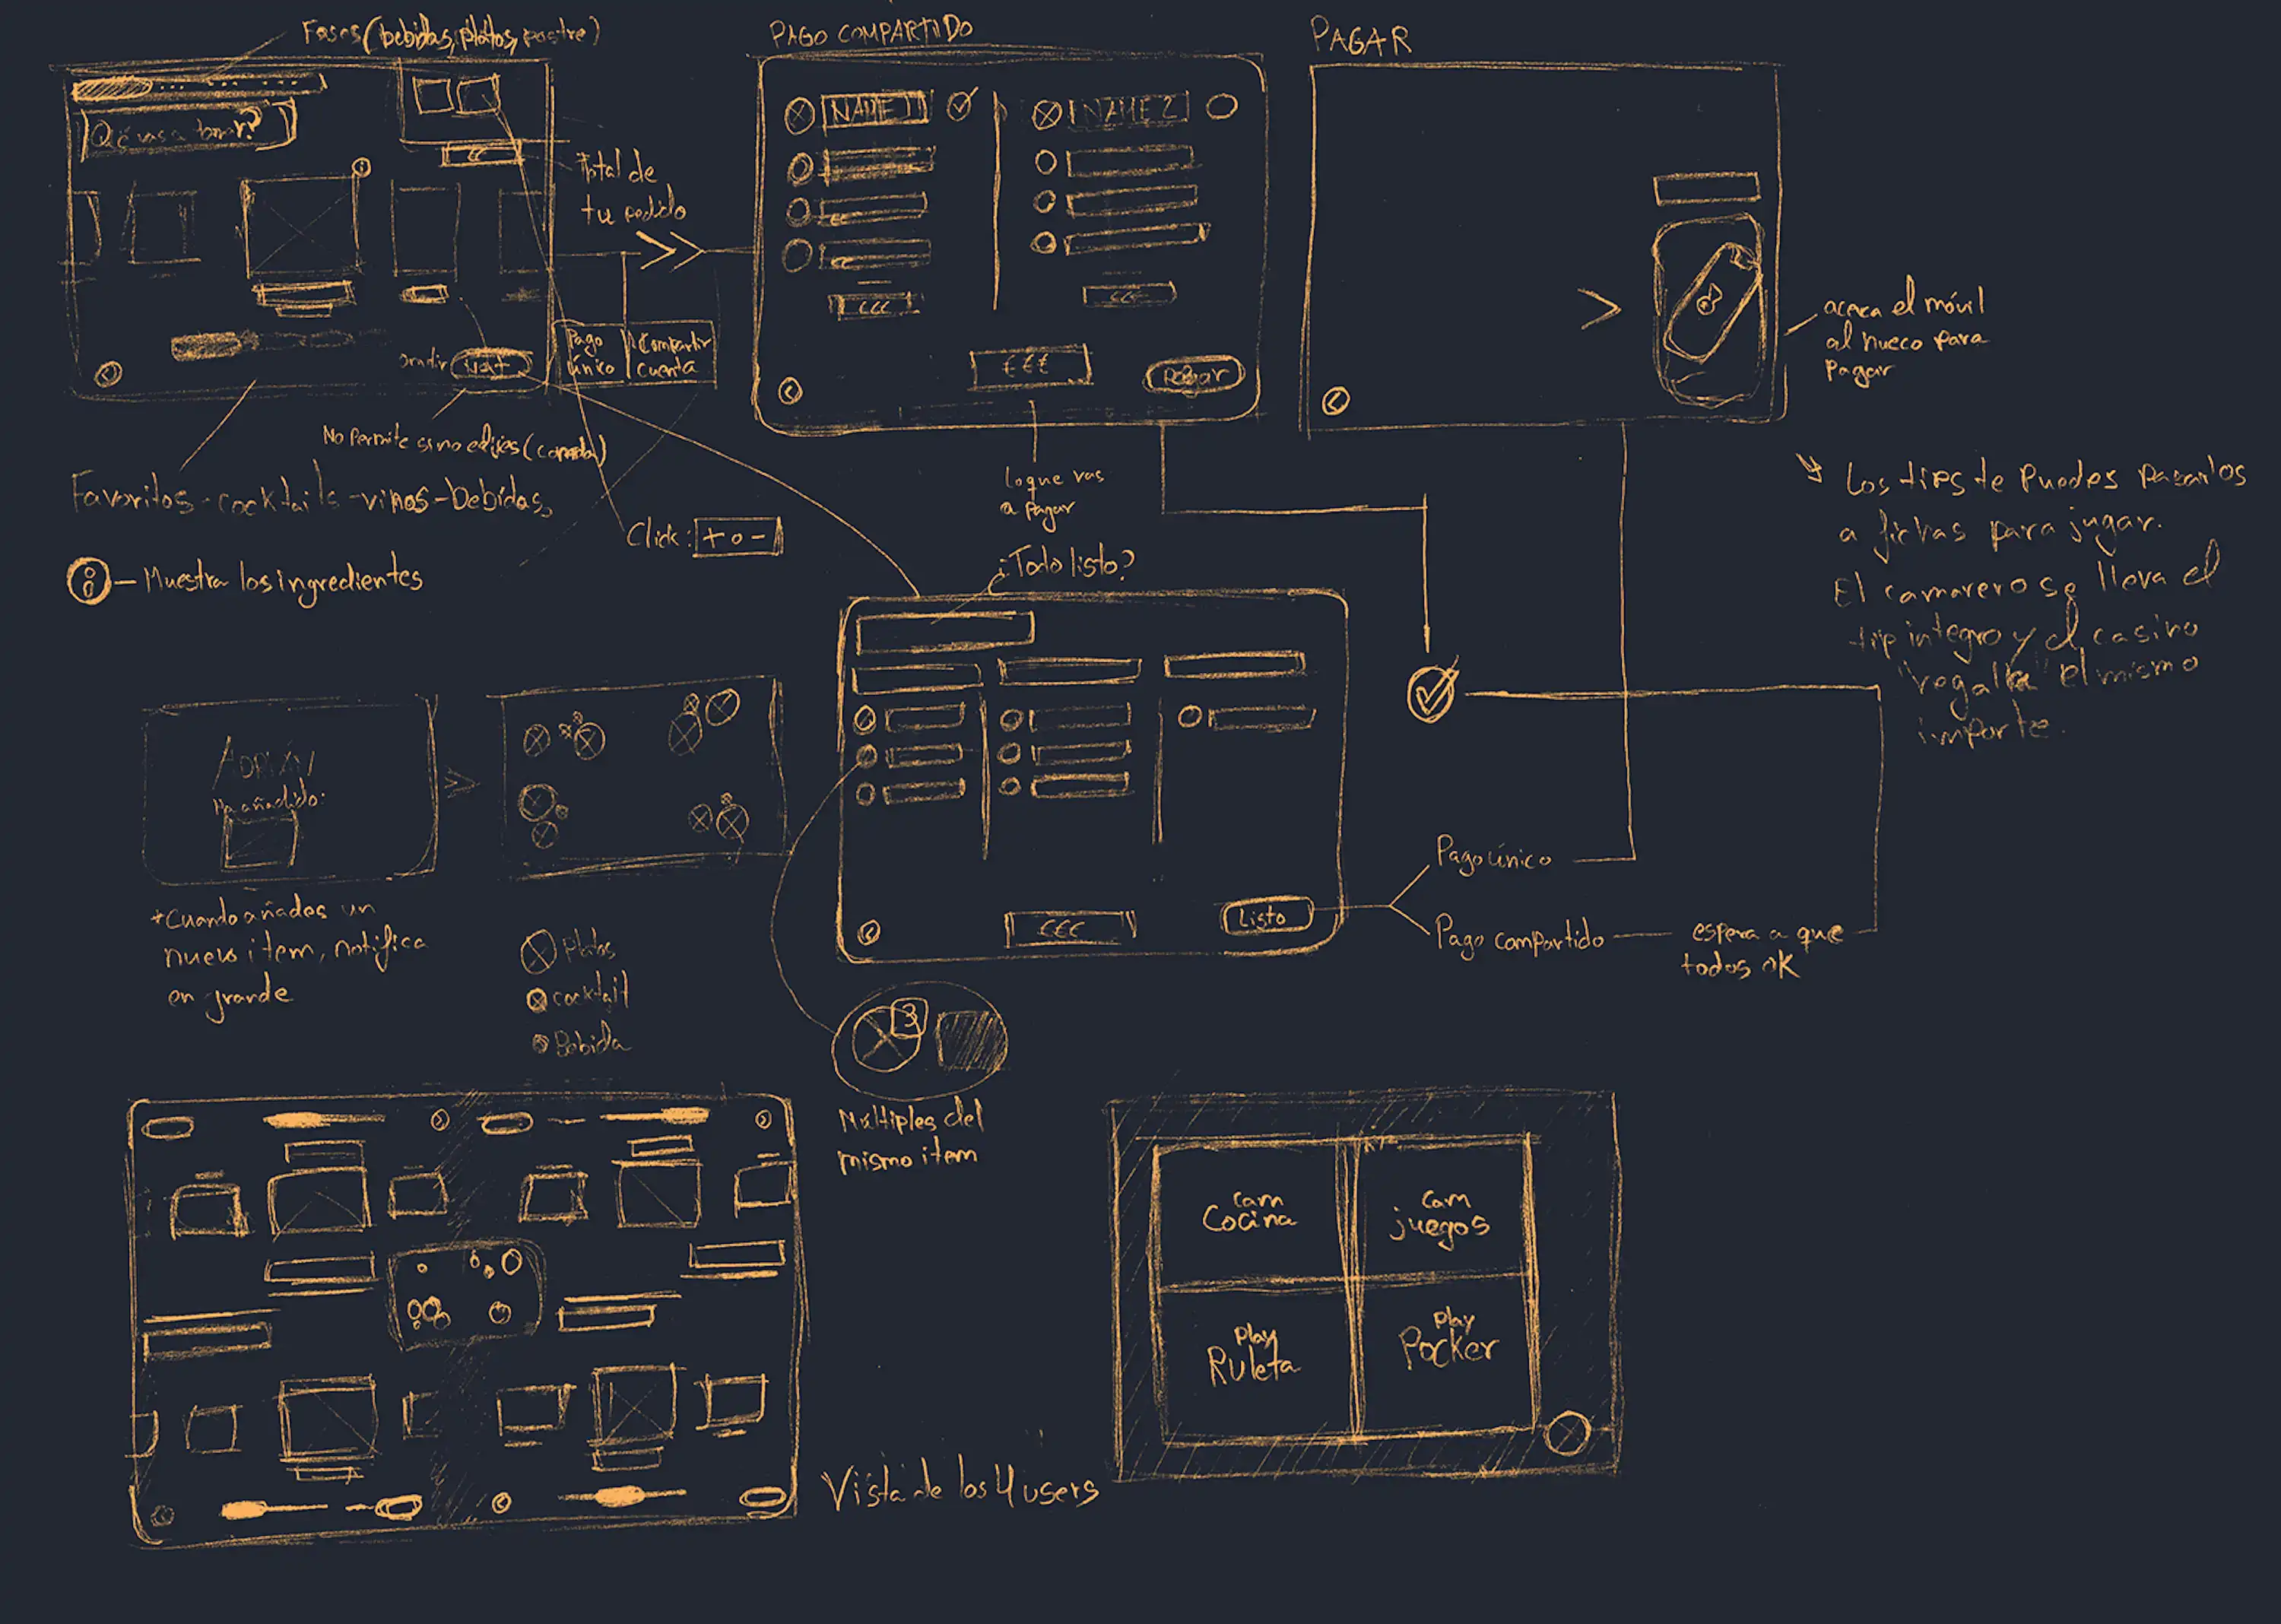 Fases (bebidas, platos, postre)
Qé vas a tomar?
€€
Total de
tu pedido
Pago
único
Compartir
cuenta
next
No permite si no eliges (comida)
Favoritos - cocktails - vinos - bebidas
i - Muestra los ingredientes
Click: + o -
PAGO COMPARTIDO
NAME 1
NAME 2
€€€
€€€
€€€
Pagar
Lo que vas
a pagar
PAGAR
acerca el móvil
al hueco para
pagar
Los tips te puedes pasarlos
a fichas para jugar.
El camarero se lleva el
tip integro y el casino
"regala" el mismo
importe.
¿Todo listo?
€€€
Listo
Pago único
Pago compartido
espera a que
todos OK
ADRIÁN
Ha añadido:
*Cuando añades un
nuevo item, notifica
en grande
Platos
cocktail
Bebida
3
Múltiples del
mismo item
Vista de los 4 users
cam
Cocina
cam
juegos
play
Ruleta
play
Pocker